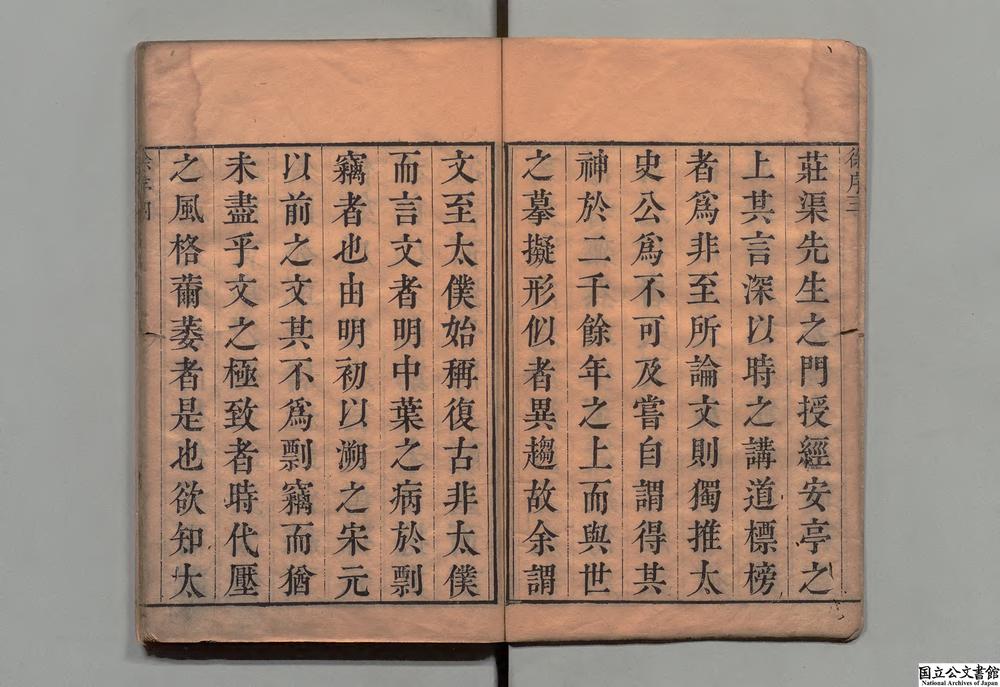 莊渠先生之門授經安亭之
上其言深以時之講道標榜
者爲非至所論文則獨推太
史公爲不可及嘗自謂得其
神於二千餘年之上而與世
之摹擬形似者異趨故余謂
文至太僕始稱復古非太僕
而言文者明中葉之病於剽
竊者也由明初以溯之宋元
以前之文其不爲剽竊而猶
未盡乎文之極致者時代壓
之風格薾萎者是也欲知太
国立公文書館
National Archives of Japan